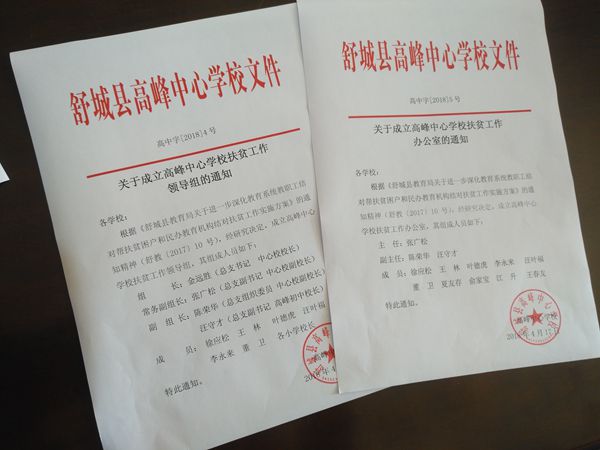 舒城县高峰中心学校文件
高中字[2018]4号
关于成立高峰中心学校扶贫工作
领导组的通知
各学校：
根据《舒城县教育局关于进一步深化教育系统教职工结
对帮扶贫困户和民办教育机构结对扶贫工作实施方案》的通
知精神（舒教（2017）10号），经研究决定，成立高峰中心
学校扶贫工作领导组，其组成人员如下：
组 长：金远胜（总支书记 中心校校长）
常务副组长：张广松（总支副书记 中心校副校长）
副 组长：陈荣华（总支组织委员 中心校副校长）
汪守才（总支副书记 高峰初中校长）
成 员：徐应松 王 林 叶德虎 汪叶福
李永来 董 卫 各小学校长
特此通知。
2018年4
舒城县高峰中心学校文件
高中字[2018]5号
关于成立高峰中心学校扶贫工作
办公室的通知
各学校：
根据《舒城县教育局关于进一步深化教育系统教职工结
对帮扶贫困户和民办教育机构结对扶贫工作实施方案》的通
知精神（舒教（2017）10号），经研究决定，成立高峰中心
学校扶贫工作办公室，其组成人员如下：
主 任：张广松
副主任：陈荣华 汪守才
成 员：徐应松 王 林 叶德虎 李永来 汪叶福
董 卫 夏友存 俞家宝 江 升 王春友
特此通知。
舒城县高峰中心学校
2018年4月17日